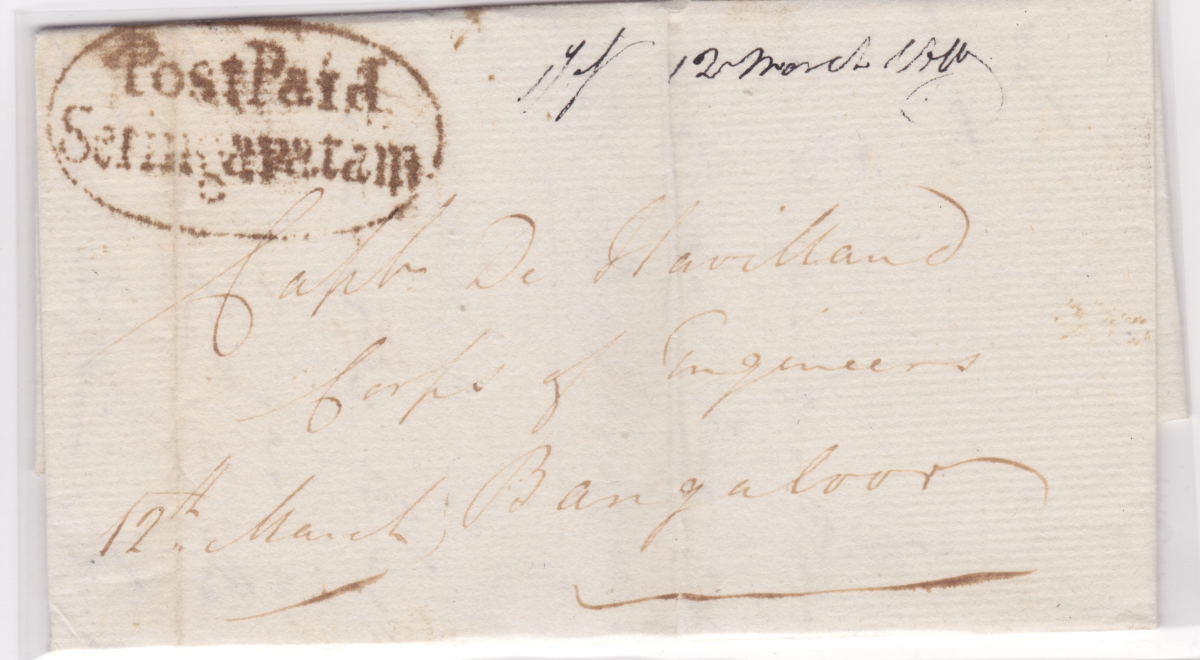 Post Paid
Seringapatam
12 March
Captn. De Havilland
Corps of Engineers
Bangaloor
12th. March